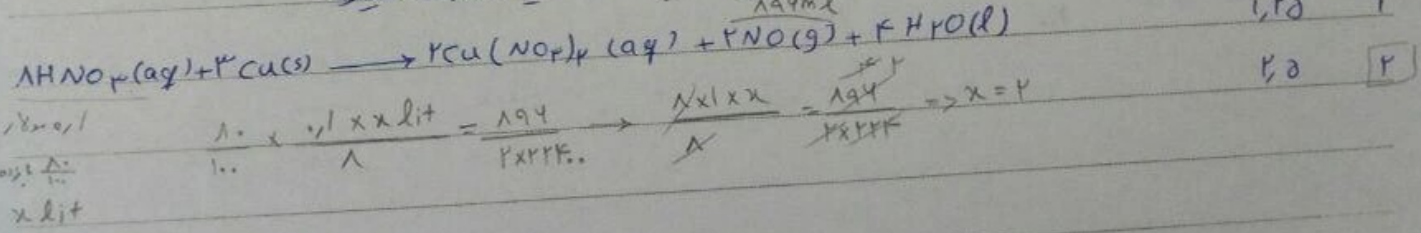 ۸۹۶ml
۸HNO۳(aq)+۳Cu(s) → ۳Cu(NO۳)۲ (aq) + ۲NO(g) + ۴H۲O(l) ۱,۲۵
۸۰/۱۰۰ × ۰,۱ × x lit/۸ = ۸۹۶/۲×۲۲۴۰۰ → ۸×۱×x/۸ = ۸۹۶/۲×۲۲۴ => x = ۲ ۲,۵ ۲
۸۰/۱۰۰
x lit